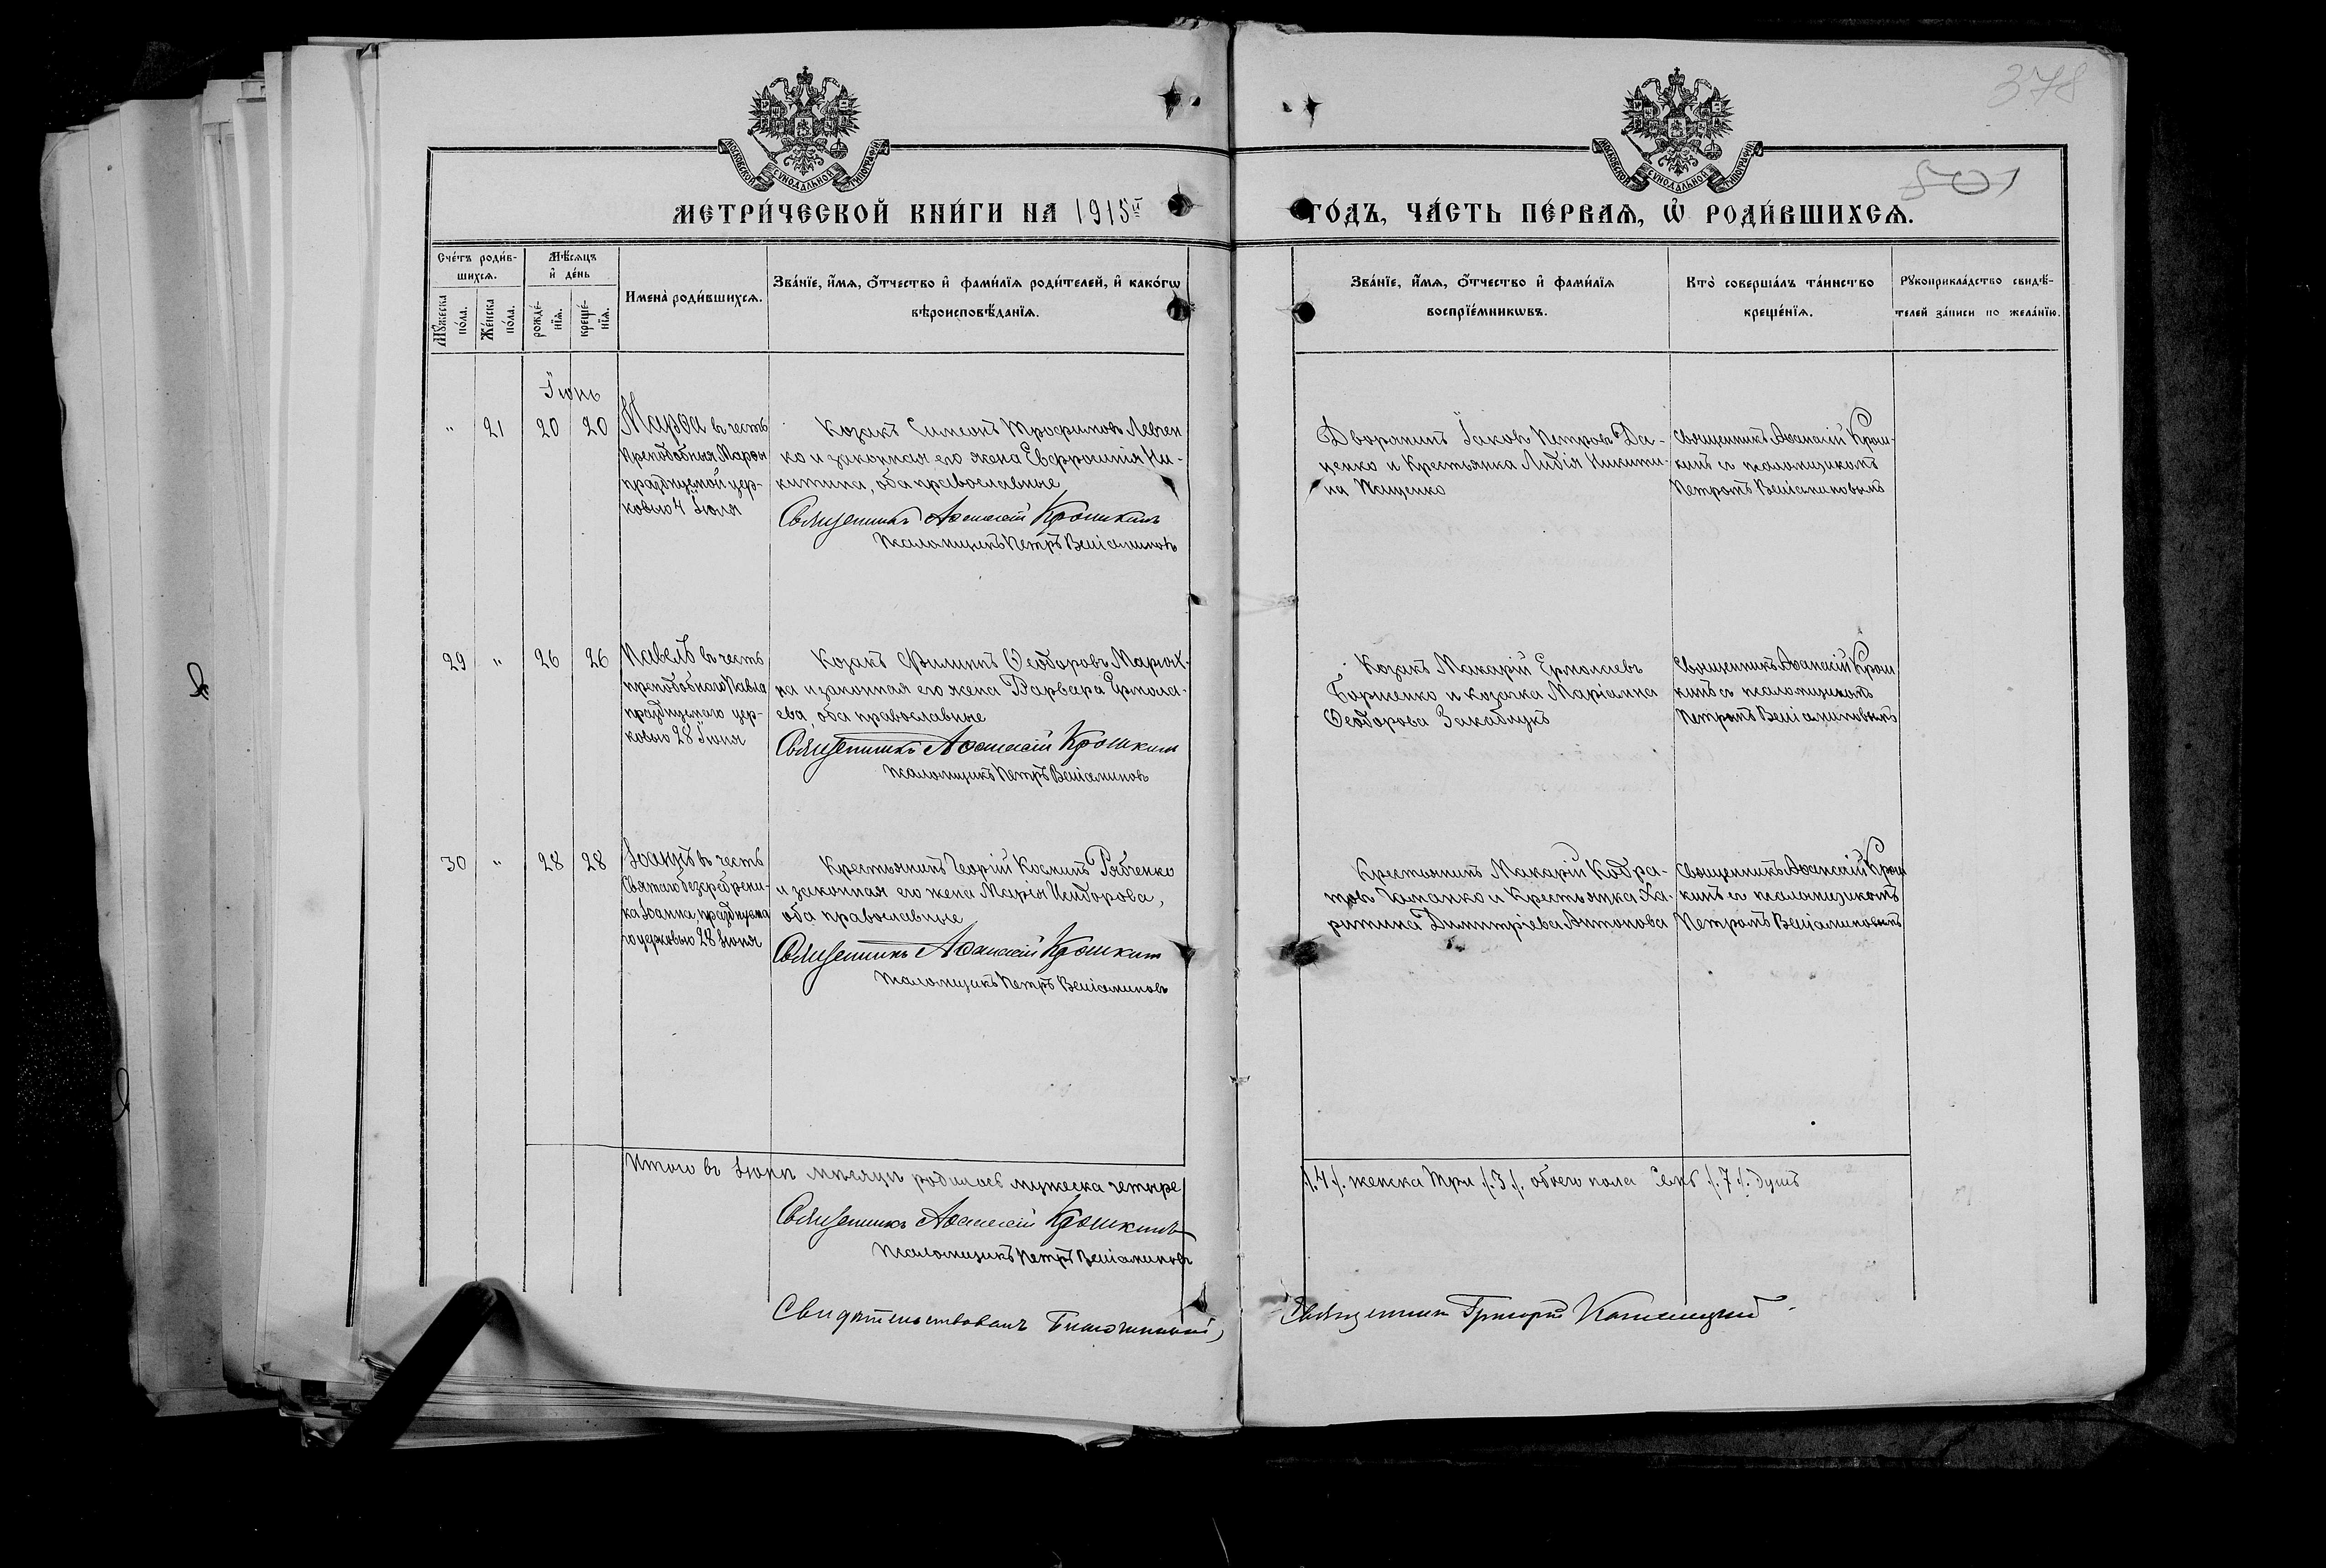 378
501
МОСКОВСКОЙ СѴНОДАЛЬНОЙ ТИПОГРАФІИ
МОСКОВСКОЙ СѴНОДАЛЬНОЙ ТИПОГРАФІИ
МЕТРИ́ЧЕСКОЙ КНИ́ГИ НА 1915й
ГО́ДЪ, ЧА́СТЬ ПЕ́РВАЯ, Ѡ҆ РОДИ́ВШИХСЯ.
Сче́тъ роди́в-
шихся.
Мѣ́сяцъ
и҆ де́нь
Мꙋ́жеска
по́ла.
Же́нска
по́ла.
рожде́-
нїя.
креще́-
нїя.
Имена̀ роди́вшихся.
Зва́нїе, и҆́мя, ѻ҆́тчество и҆ фами́лїя роди́телей, и҆ како́гѡ
вѣроисповѣ́данїя.
Зва́нїе, и҆́мя, ѻ҆́тчество и҆ фами́лїя
воспрїе́мникѡвъ.
Кто̀ соверша́лъ та́инство
креще́нїя.
Рꙋкоприкла́дство свидѣ́-
телей за́писи по жела́нїю.
Іюнь
" 21 20 20
Марѳа въ честь
Преподобныя Марѳы
празднуемой цер-
ковью 4 Іюля
Козакъ Симеонъ Трофимовъ Левчен
ко и законная его жена Евфросинія Ни-
китина, оба православные
Священникъ Аѳанасій Крошкинъ
Псаломщикъ Петръ Веніаминовъ
Дворянинъ Іаковъ Петровъ Да-
ценко и Крестьянка Лидія Никити-
на Пащенко
Священникъ Аѳанасій Крош-
кинъ съ псаломщикомъ
Петромъ Веніаминовымъ
29 " 26 26
Павелъ въ честь
преподобнаго Павла
празднуемаго цер-
ковью 28 Іюня
Козакъ Филиппъ Ѳеодоровъ Марюх-
на и законная его жена Варвара Ермола-
ева, оба православные
Священникъ Аѳанасій Крошкинъ
Псаломщикъ Петръ Веніаминовъ
Козакъ Макарій Ермолаевъ
Борженко и козачка Маріанна
Ѳеодорова Закаблукъ
Священникъ Аѳанасій Крош
кинъ съ псаломщикомъ
Петромъ Веніаминовымъ
30 " 28 28
Іоаннъ въ честь
Святаго безсребрени-
ка Іоанна, празднуема
го церковью 28 Іюня
Крестьянинъ Георгій Косминъ Рябченко
и законная его жена Марія Исидорова,
оба православные
Священникъ Аѳанасій Крошкинъ
Псаломщикъ Петръ Веніаминовъ
Крестьянинъ Макарій Кодра-
товъ Романко и Крестьянка Ха-
ритина Димитріева Антонова
Священникъ Аѳанасій Крош
кинъ съ псаломщикомъ
Петромъ Веніаминовымъ
Итого въ Іюнѣ мѣсяцѣ родилось мужеска четыре
/.4/. женска три /.3/. обоего пола семь /.7/. душъ
Священникъ Аѳанасій Крошкинъ
Псаломщикъ Петръ Веніаминовъ
Свидѣтельствовалъ
Священникъ Григорій